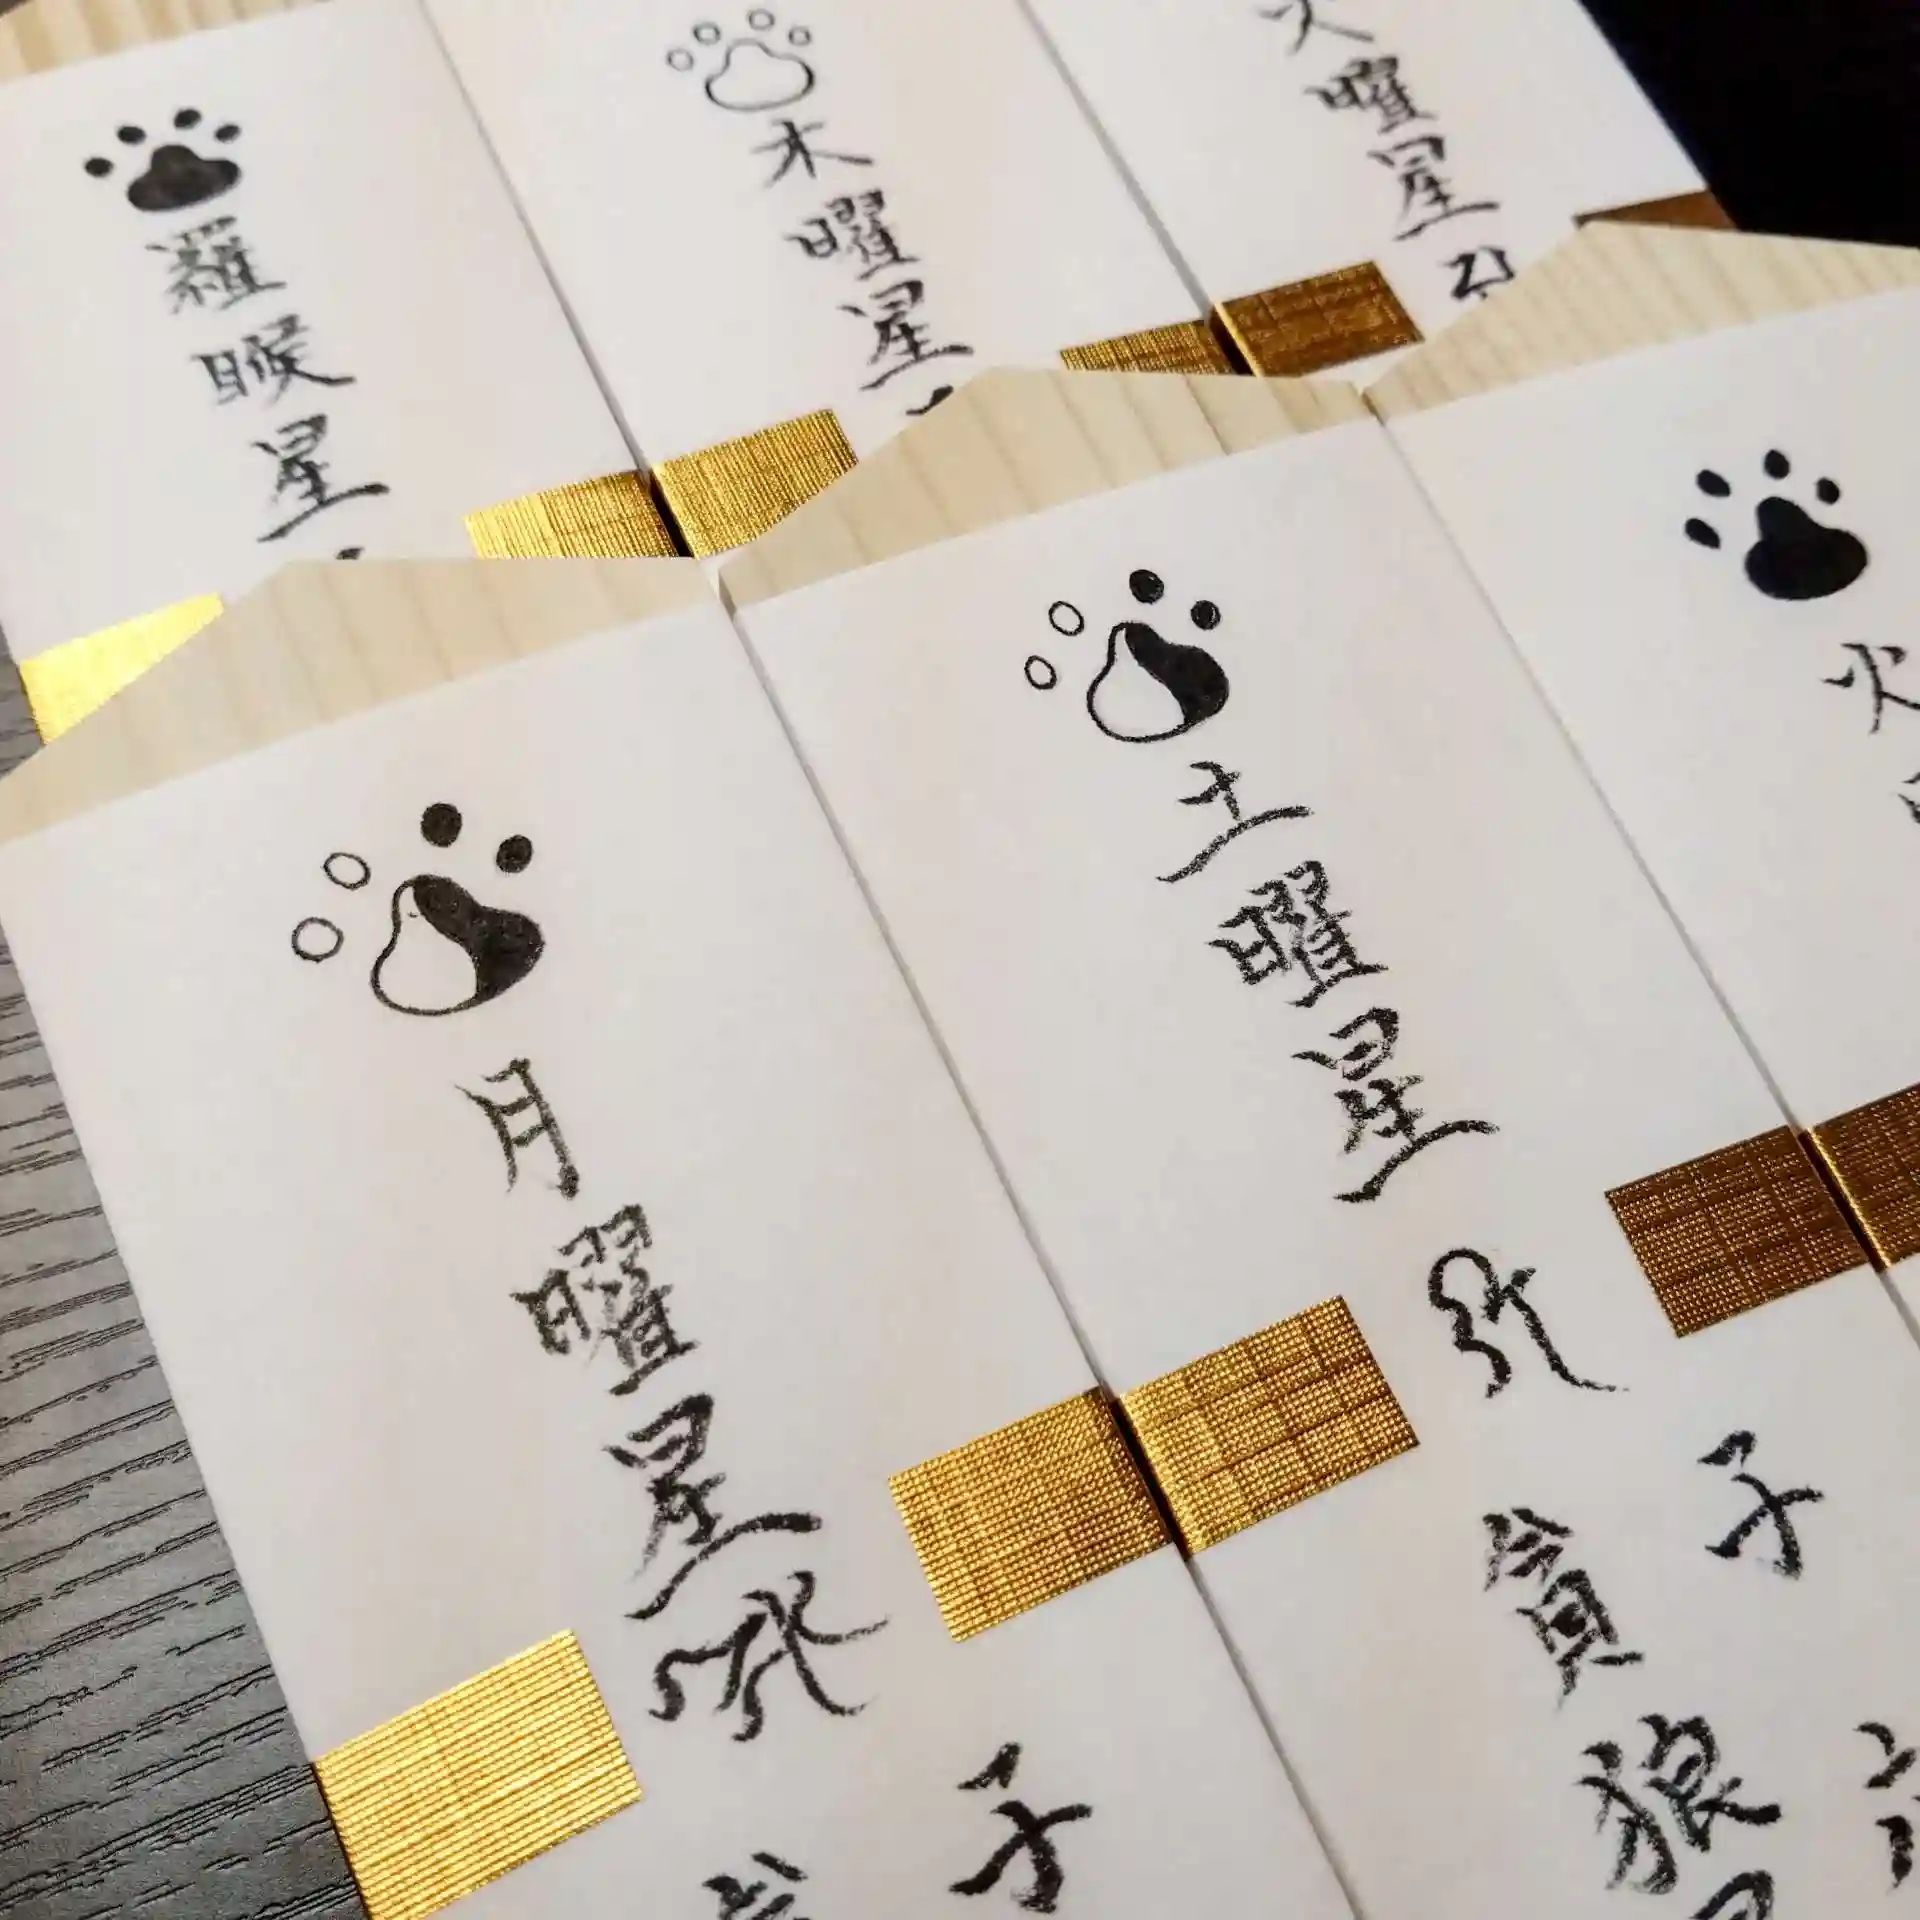 羅睺星
木曜星
火曜星
月曜星
子
土曜星
子
貪
狼
火